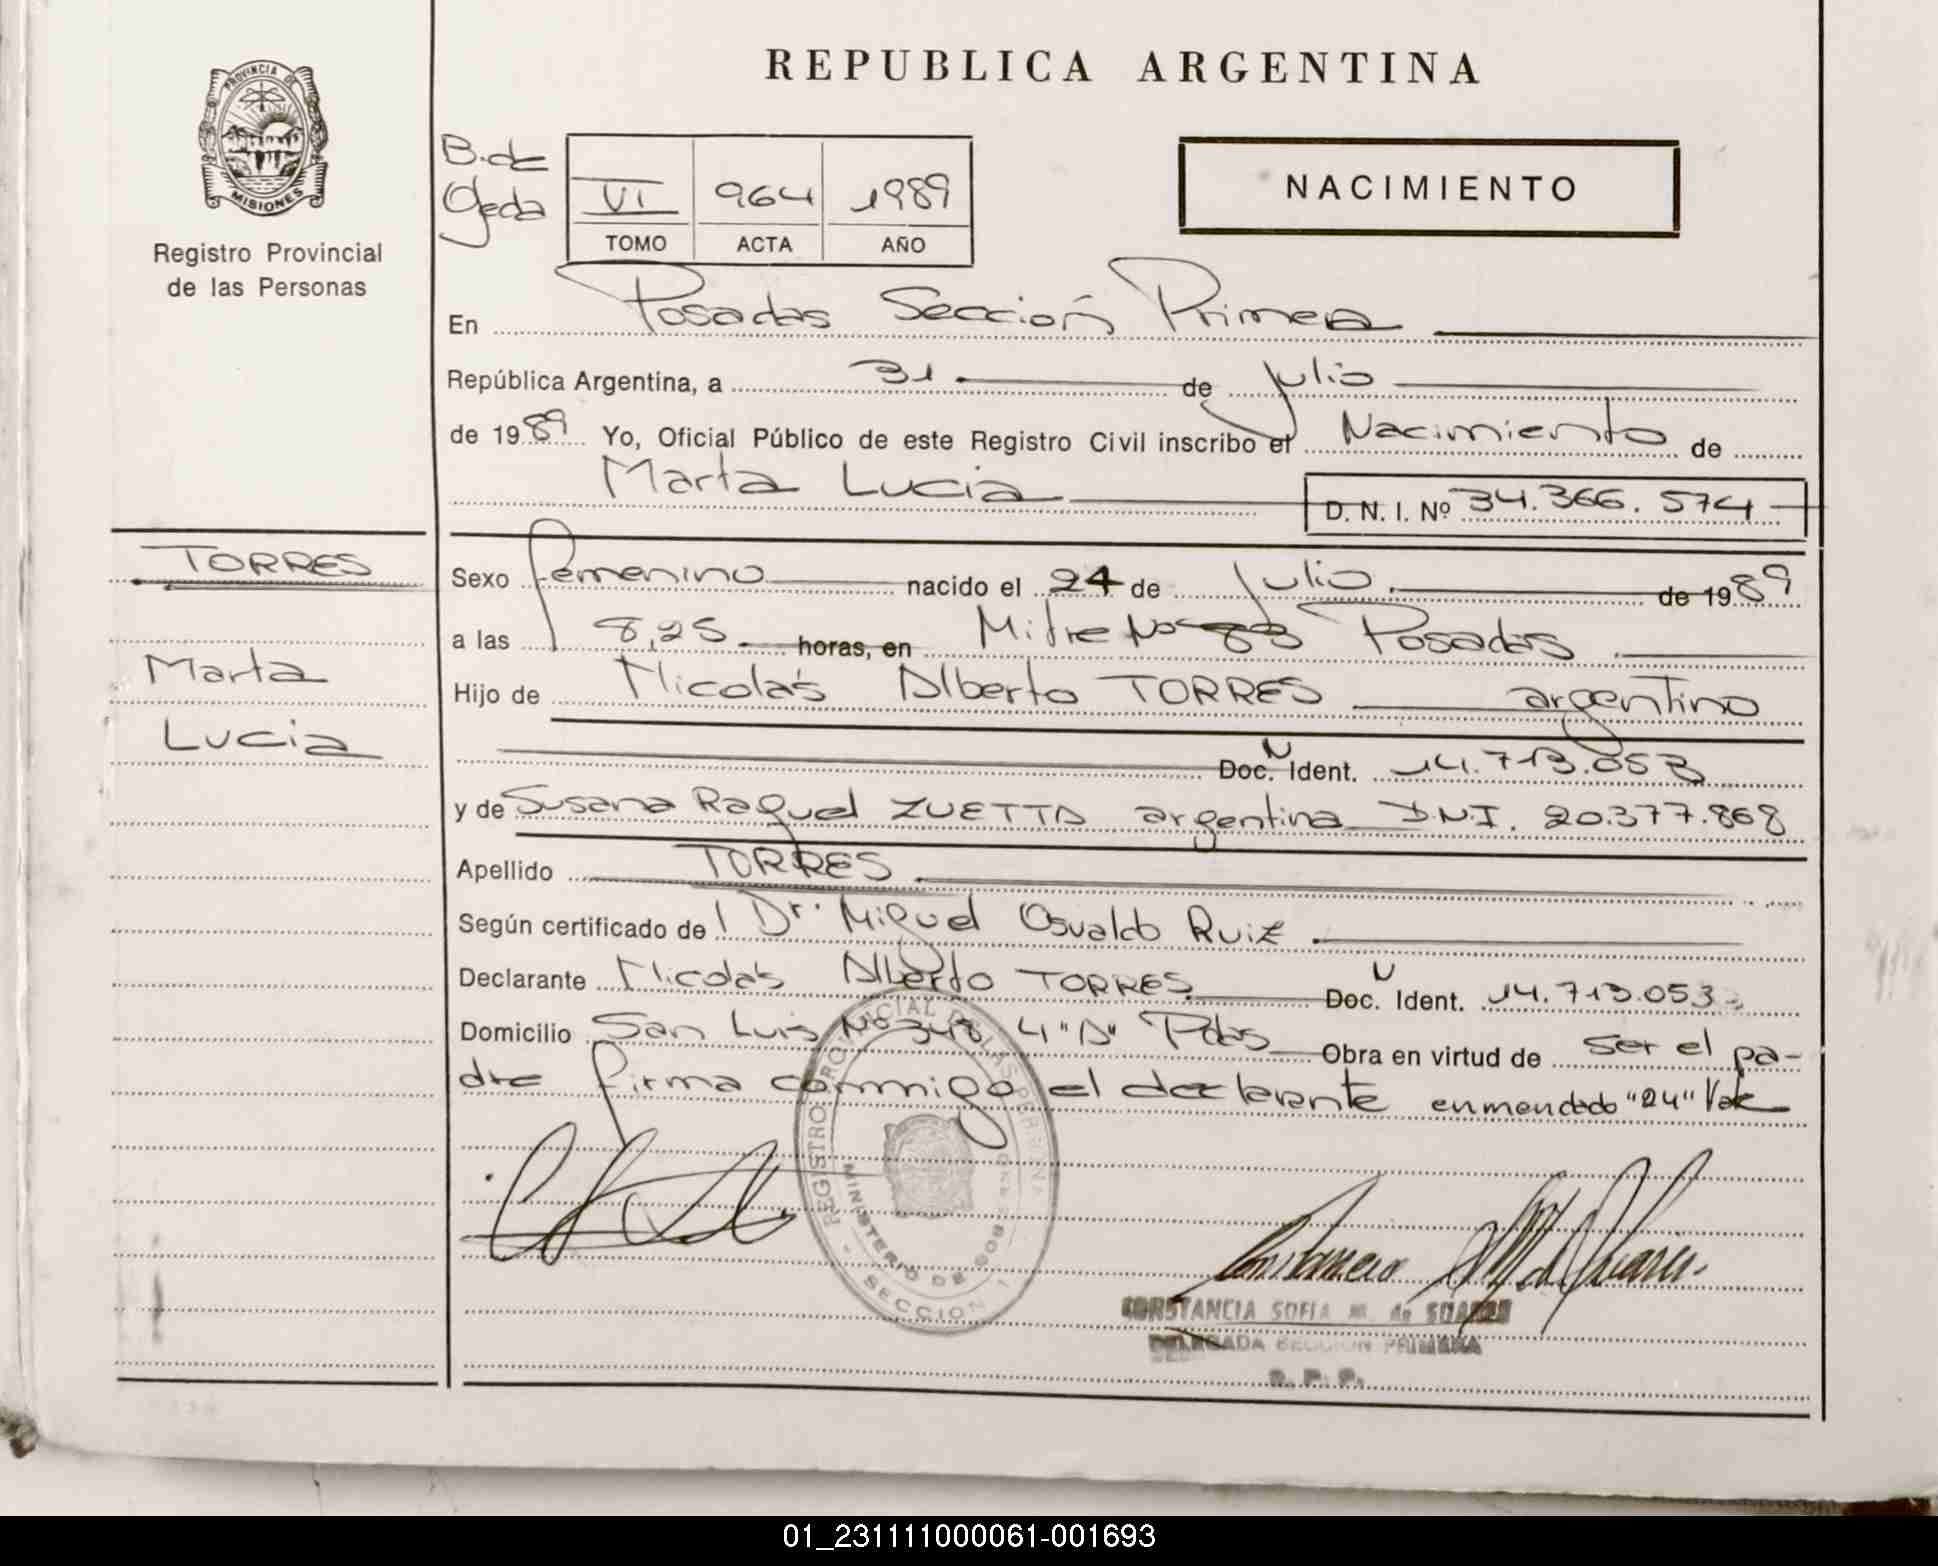 REPUBLICA ARGENTINA
PROVINCIA DE
MISIONES
Registro Provincial
de las Personas
B. de
Ojeda
VI 964 1989
TOMO ACTA AÑO
NACIMIENTO
En Posadas Sección Primera
República Argentina, a 31 de Julio
de 1989 Yo, Oficial Público de este Registro Civil inscribo el Nacimiento de
Marta Lucia D. N. I. Nº 34.366.574
TORRES
Marta
Lucia
Sexo femenino nacido el 24 de Julio de 1989
a las 8,25 horas, en Mitre No Posadas
Hijo de Nicolás Alberto TORRES argentino
Doc. N Ident. 14.713.053
y de Susana Raquel ZUETTA argentina D.N.I. 20.377.868
Apellido TORRES
Según certificado de Dr. Miguel Osvaldo Ruiz
Declarante Nicolás Alberto TORRES Doc. Ident. 14.713.053
Domicilio San Luis No 348 4 "D" Pdas Obra en virtud de ser el pa-
dre firma conmigo el declarante enmendado "24" Vale
REGISTRO PROVINCIAL DE LAS PERSONAS
MINISTERIO DE GOB
SECCION 1
CONSTANCIA SOFIA M. de SUAREZ
DELEGADA SECCION PRIMERA
R. P. P.
01_231111000061-001693